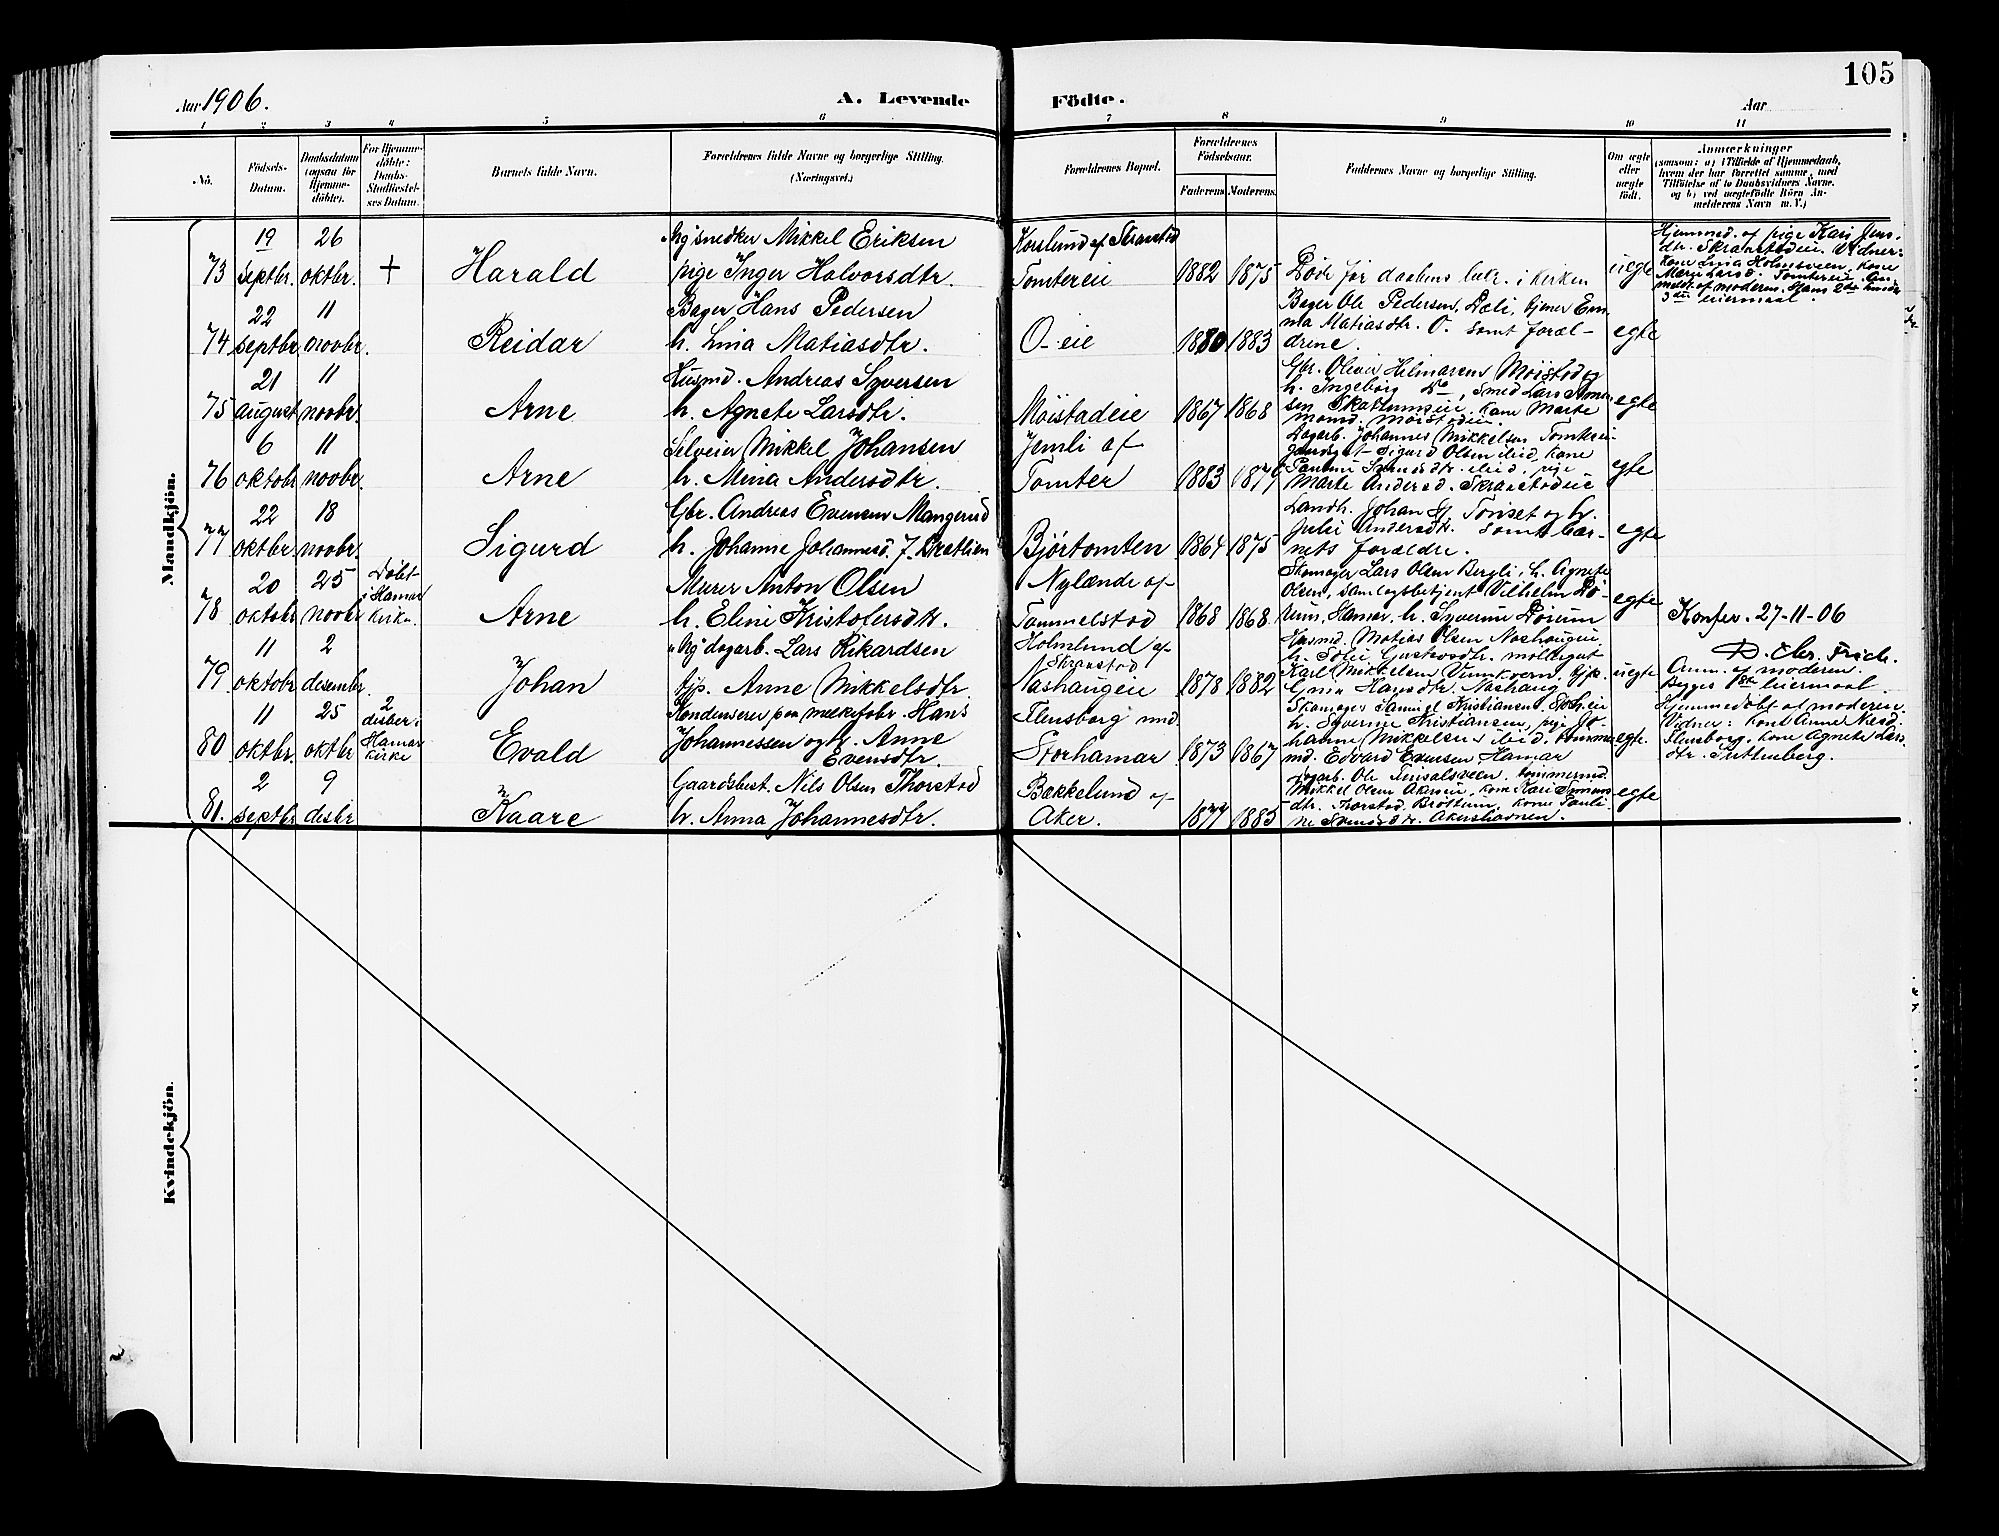 105
Aar 1906.
A. Levende Födte.
Aar
1 2 3 4 5 6 7 8 9 10 11
No.
Födsels-Datum.
Daabsdatum (ogsaa for Hjemmedöbte).
For Hjemmedöbte: Daabs-Stadfæstelses Datum.
Barnets fulde Navn.
Forældrenes fulde Navne og borgerlige Stilling. (Næringsvei.)
Forældrenes Bopæl.
Forældrenes Födselsaar.
Faderens. Moderens.
Faddernes Navne og borgerlige Stilling.
Om ægte eller uægte födt.
Anmærkninger (saasom: a) i Tilfælde af Hjemmedaab, hvem der har forrettet samme, med Tilföielse af to Daabsvidners Navne, og b) ved uægtefödte Börn Anmelderens Navn m. V.)
Mandkjön.
73
19 septbr.
26 oktbr.
+
Harald
snedker Mikkel Eriksen
pige Inger Halvorsdtr.
Korslund af Skranstad
Tomtereie
1882 1875
Döde för daabens bekr. i kirken
uegte
Hjemmed. af pige Kari Jens
dtr. Skranstadeie. Vidner:
kone Lina Holmsveen, kone
Marie Larsd. Tomtereie. An
meldt af moderen. Hans 2det hendes
3die leiermaal.
74
22 septbr.
11 novbr.
Reidar
Bager Hans Pedersen
h. Lina Matiasdtr.
O-eie
1880 1883
Bager Ole Pedersen, Dæli, tjener Em-
ma Matiasdtr. O. samt foræl-
drene.
egte
75
21 august
11 novbr.
Arne
Husmd. Andreas Syversen
h. Agnete Larsdtr.
Möistadeie
1867 1868
Gbr. Oliver Hilmarsens Möistad og
h. Ingeborg Do, Smed Lars
sen Skattumseie, kone Marte
Möistadeie.
egte
76
6 oktobr.
11 novbr.
Arne
Selveier Mikkel Johansen
h. Mina Andersdtr.
Jemli af
Tomter
1883 1879
Dagarb. Johannes Mikkelsen Tomterei
Sigurd Olsen ibid, kone
Pauline Svendsdtr. ibid, pige
Marte Andersd. Skranstadeie
egte
77
22 oktbr.
18 novbr.
Sigurd
Gbr. Andreas Evensen Mangerud
h. Johanne Johannesd. f. Brætlien
Björtomten
1864 1875
Landh. Johan H. Tonset og h.
Julie Andersdtr. samt bar-
nets forældre.
egte
78
20 oktobr.
25 novbr.
Döbt
i Hamar
kirke.
Arne
Murer Anton Olsen
h. Eline Kristofersdtr.
Nylænde af
Tommelstad
1868 1868
Skomager Lars Olsen Bergli, h. Agnete
Olsen, samlagsbetjent Vilhelm Dö-
rum, Hamar, h. Syverine Dörum
egte
Konfer. 27-11-06
D. Chr. Frich.
79
11 oktobr.
2 desembr.
Johan
Ug. dagarb. Lars Rikardsen
Tjp. Anne Mikkelsdtr.
Holmlund af
Skranstad
Nashaugeie
1878 1882
Husmd. Matias Olsen Nashaugeie
h. Sofie Gustavsdtr. möllergut
Karl Mikkelsen Vumkvern, tjp.
Gina Hansdtr. Nashaug.
uegte
Anm. af moderen.
Begges 1ste leiermaal.
80
11 oktbr.
25 oktbr
2
desber i
Hamar
kirke
Evald
Kondenserer paa melkefabr. Hans
Johannessen og h. Anne
Evensdtr.
Flensborg und.
Storhamar
1873 1867
Skomager Samuel Kristiansen
h. Syverine Kristiansen, pige Jo-
hanne Mikkelsen ibid. tömmer
md. Edvard Evensen Hamar
egte.
Hjemmedöbt af moderen.
Vidner: kone Anne
Flensborg. kone Agnete Lars
dtr. Suttenberg.
81.
2 septbr
9 desbr
Kaare
Gaardsbest. Nils Olsen Thorstad
h. Anna Johannesdtr.
Bækkelund af
Aker.
1877 1885
Dagarb. Ole Finsalsveen, tömmermd.
Mikkel Olsen Akerseie, kone Kari Simens
dtr. Thorstad, Bröttum, kone Pauli-
ne Svendsdtr. Akershavnen.
egte
Kvindekjön.